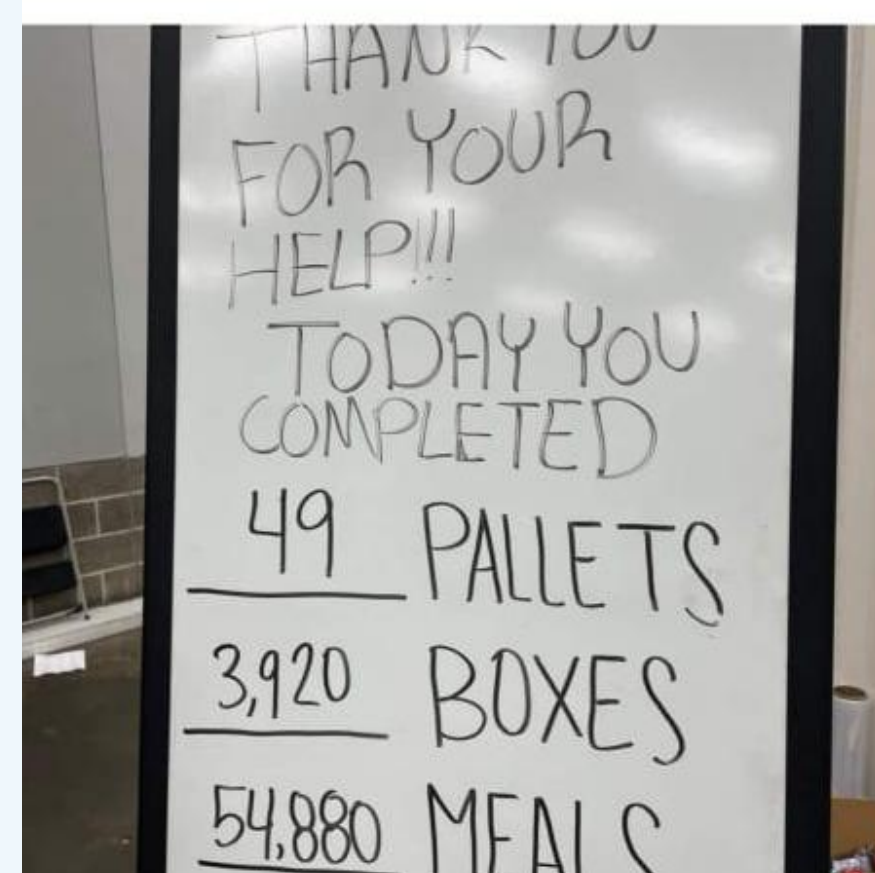 THANK YOU
FOR YOUR
HELP!!!
TODAY YOU
COMPLETED
49 PALLETS
3,920 BOXES
54,880 MEALS